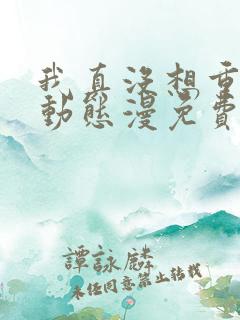 我真没想重
動態漫免費
譚詠麟
未任同意禁止转载